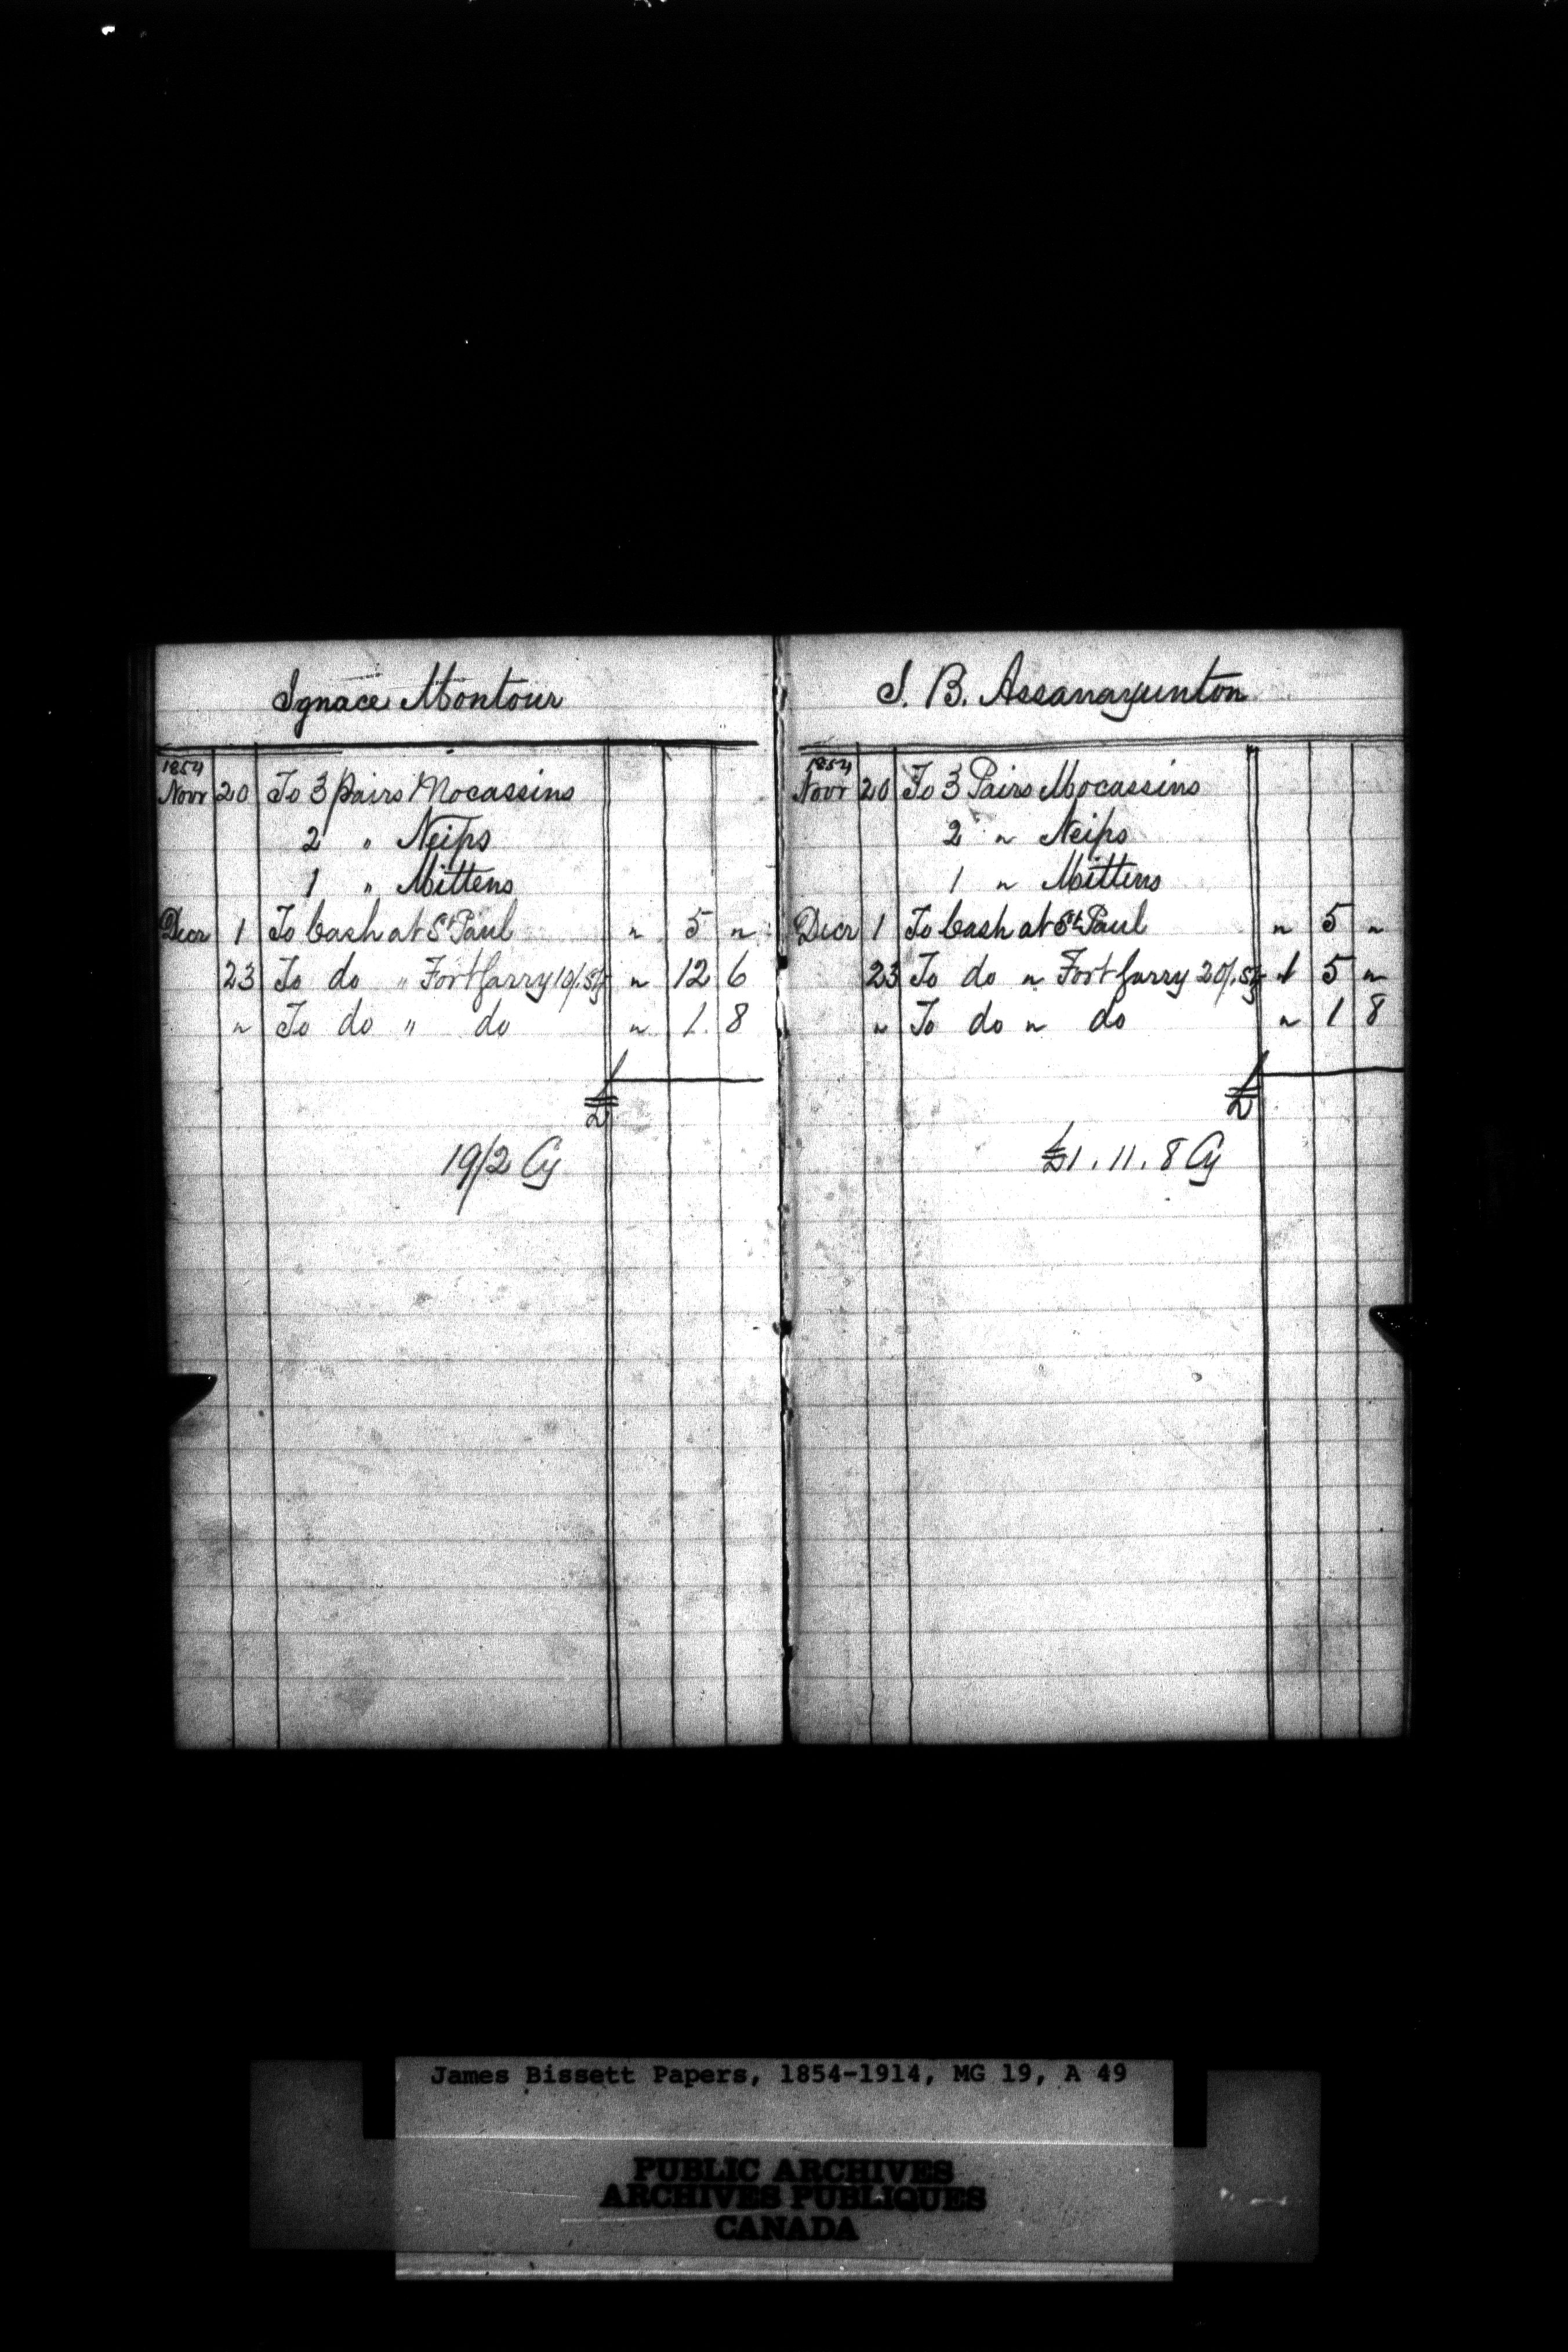 Ignace Montour
1854
Novr 20 To 3 pairs Mocassins
2 " Neips
1 " Mittens
Decr 1 To Cash at St Paul " 5 "
23 To do " Fort Garry 10/. Stg " 12 6
" To do " do " 1. 8
£
19/2 Cy
J. B. Assanayunton
1854
Novr 20 To 3 Pairs Mocassins
2 " Neips
1 " Mittens
Decr 1 To Cash at St Paul " 5 "
23 To do " Fort Garry 20/. Stg 1 5 "
" To do " do " 1 8
£
£1. 11. 8 Cy
James Bissett Papers, 1854-1914, MG 19, A 49
PUBLIC ARCHIVES
ARCHIVES PUBLIQUES
CANADA